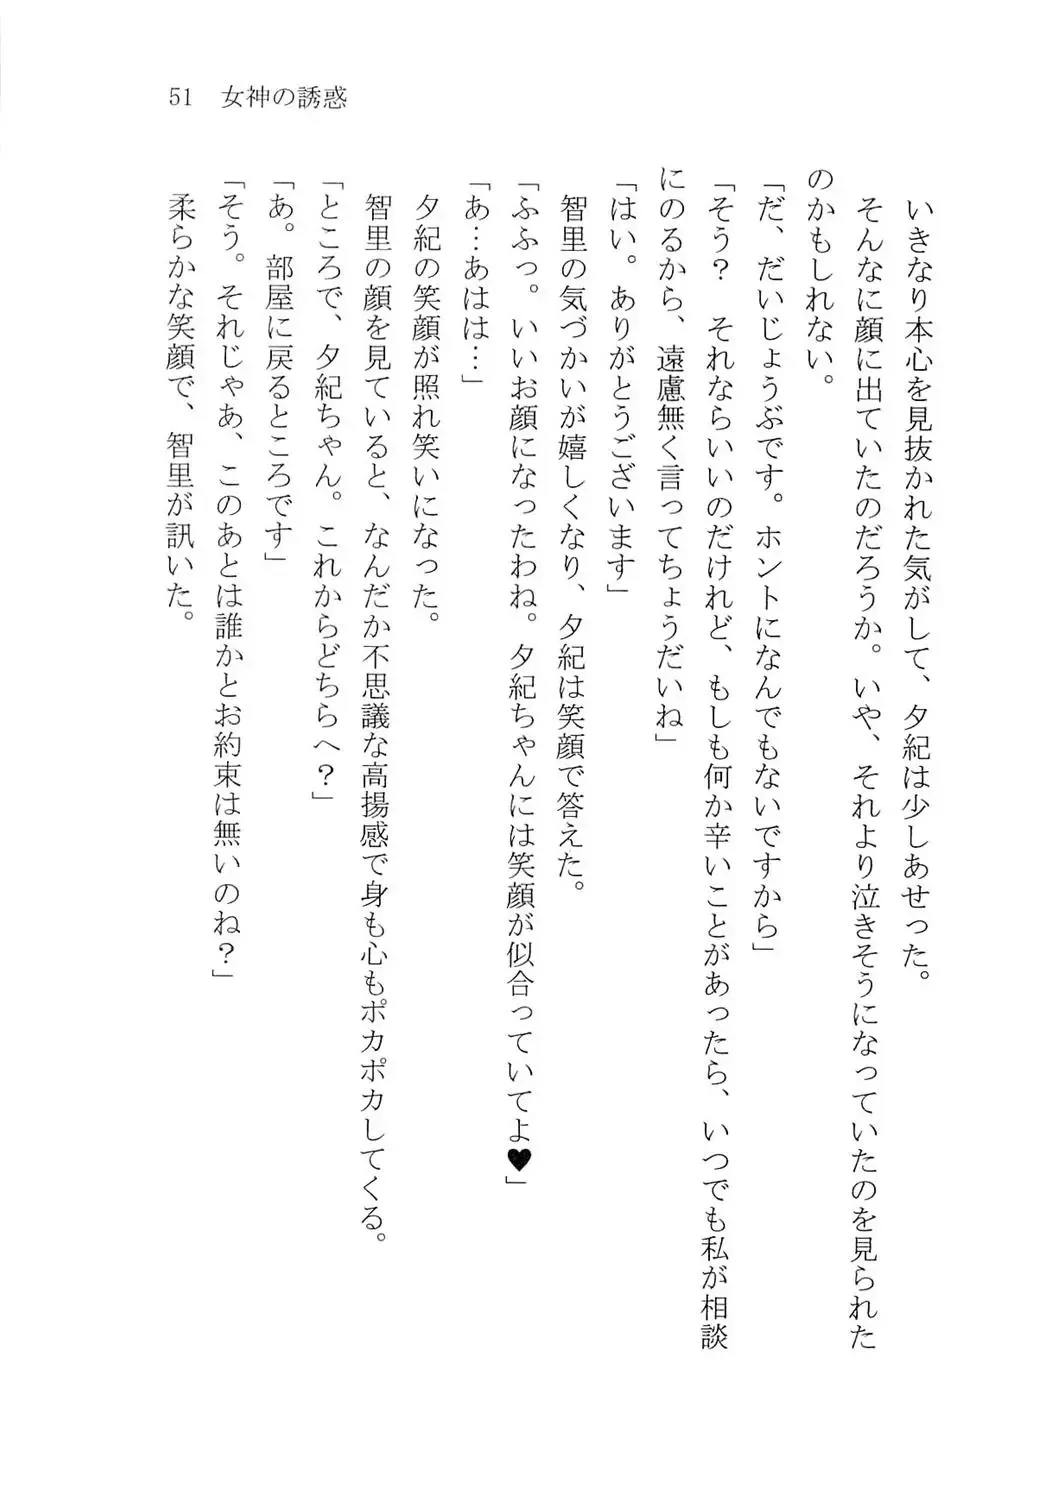 51 女神の誘惑
いきなり本心を見抜かれた気がして、夕紀は少しあせった。
そんなに顔に出ていたのだろうか。いや、それより泣きそうになっていたのを見られた
のかもしれない。
「だ、だいじょうぶです。ホントになんでもないですから」
「そう？　それならいいのだけれど、もしも何か辛いことがあったら、いつでも私が相談
にのるから、遠慮無く言ってちょうだいね」
「はい。ありがとうございます」
智里の気づかいが嬉しくなり、夕紀は笑顔で答えた。
「ふふっ。いいお顔になったわね。夕紀ちゃんには笑顔が似合っていてよ♥」
「あ…あはは…」
夕紀の笑顔が照れ笑いになった。
智里の顔を見ていると、なんだか不思議な高揚感で身も心もポカポカしてくる。
「ところで、夕紀ちゃん。これからどちらへ？」
「あ。部屋に戻るところです」
「そう。それじゃあ、このあとは誰かとお約束は無いのね？」
柔らかな笑顔で、智里が訊いた。